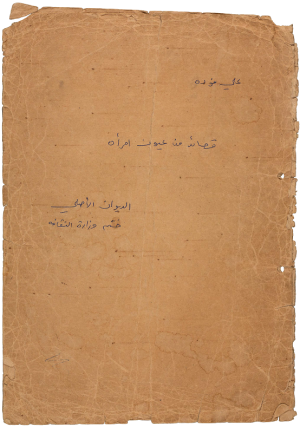 علي فوده
قصائد من عيون امرأة
الديوان الأصلي
ختم وزارة الثقافه